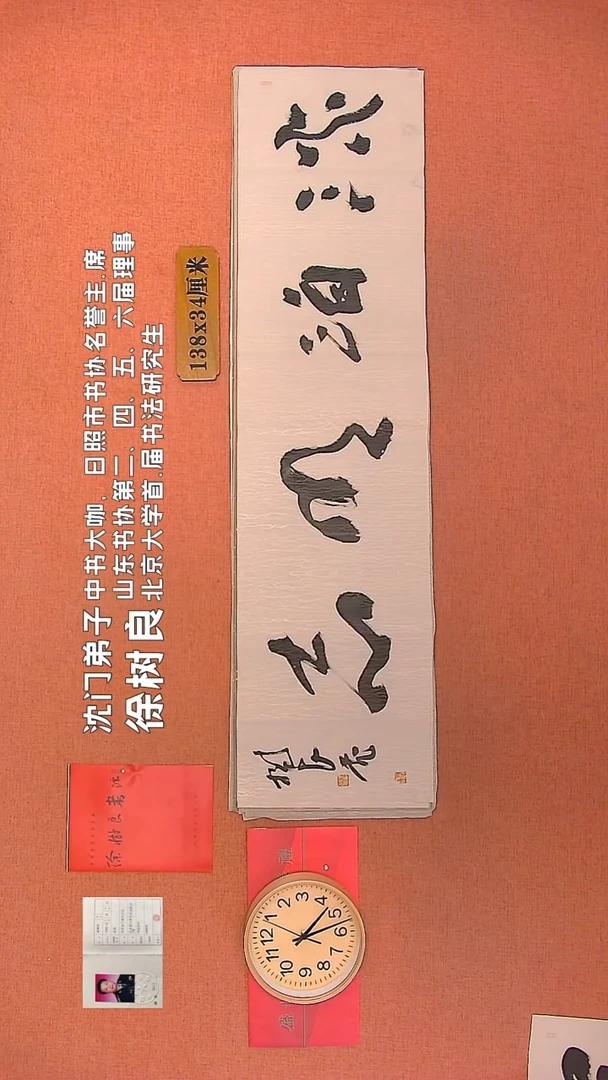 沈门弟子
徐树良
中书大咖、日照市书协名誉主席
山东书协第二、四、五、六届理事
北京大学首届书法研究生
138x34厘米
淡泊明志
徐树良书法
12
1
2
3
4
5
6
7
8
9
10
11